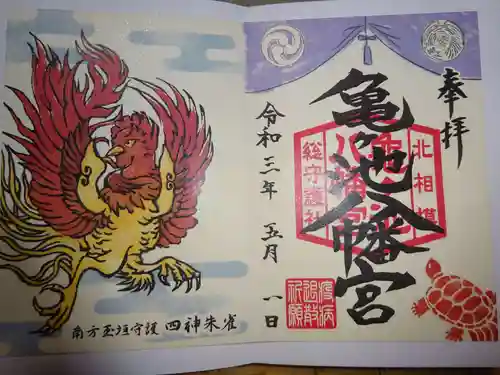 奉拝
亀ヶ池八幡宮
北相模
総守護社
令和三年 五月 一日
疫病
退散
祈願
南方玉垣守護 四神朱雀